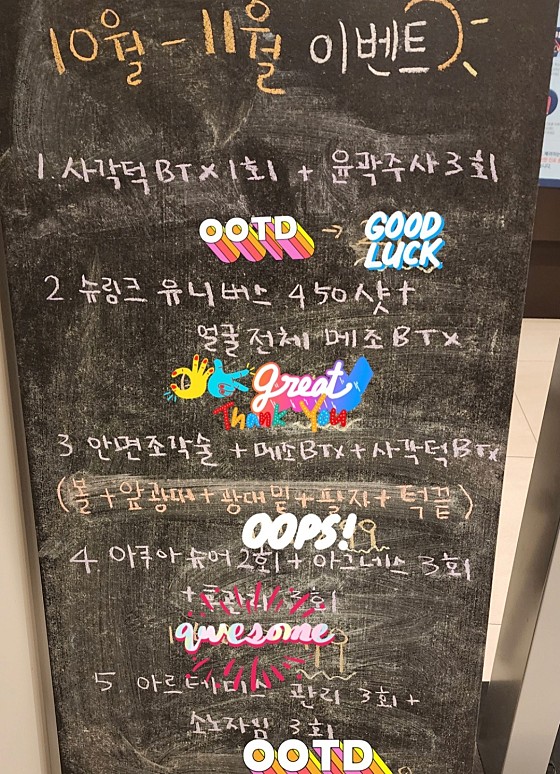 10월 - 11월 이벤트
1. 사각턱 BTX 1회 + 윤곽주사 3회
OOTD → GOOD LUCK
2. 슈링크 유니버스 450샷 +
얼굴전체 메조BTX
great
Thank You
3 안면조각술 + 메조BTX + 사각턱BTX
(볼+앞광대+광대밑+팔자+턱끝)
OOPS!
4. 아쿠아슈어 2회 + 아그네스 3회
awesome
5. 아르테미스 관리 3회 +
소노자임 3회
OOTD